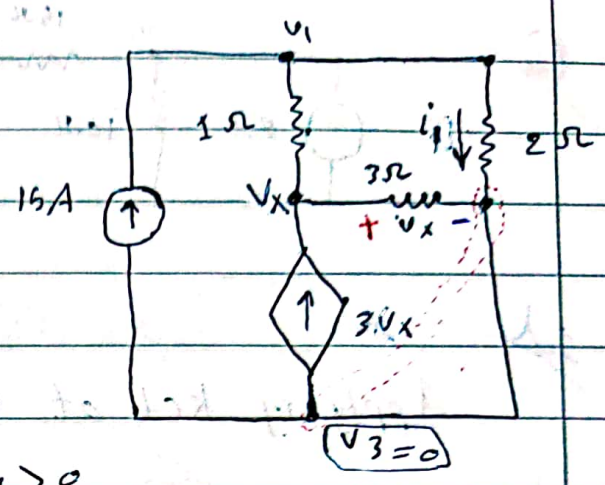 v₁
1 Ω
i₁
2 Ω
3Ω
15A
Vx
+ vx -
3.vx
v3=0
> 0